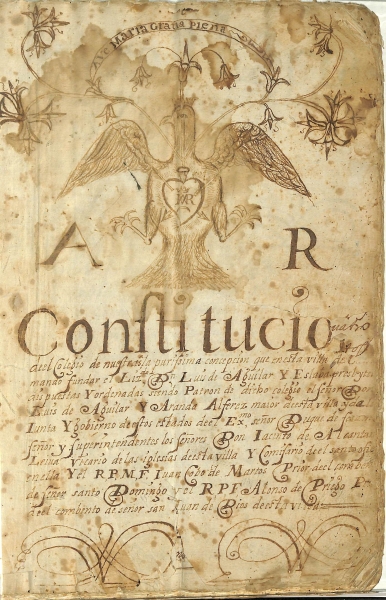 Ave Maria Gratia Plena
A R
Constitucio
del Colegio de nuestra s.ª purissima concepcion que en esta villa de C
mando fundar el Liz.do Dn Luis di Aguilar Y Eslava presbytero
puestas Y ordenadas siendo Patron de dicho colegio el señor Don
Luis de Aguilar Y Aranda Alferez maior de esta villa
Junta Y gobierno destos estados de el Ex.mo señor Duque de
señor y superintendentes los señores Don Jacinto de
Leiva Vicario de las iglesias de esta villa Y Comisario de el
Y el R.P.M.F. Juan Cobo de Martos Prior de el conb.to
de señor santo Domingo y el R P F Alonso de Priego
de el combento de señor san Juan de Dios de esta villa